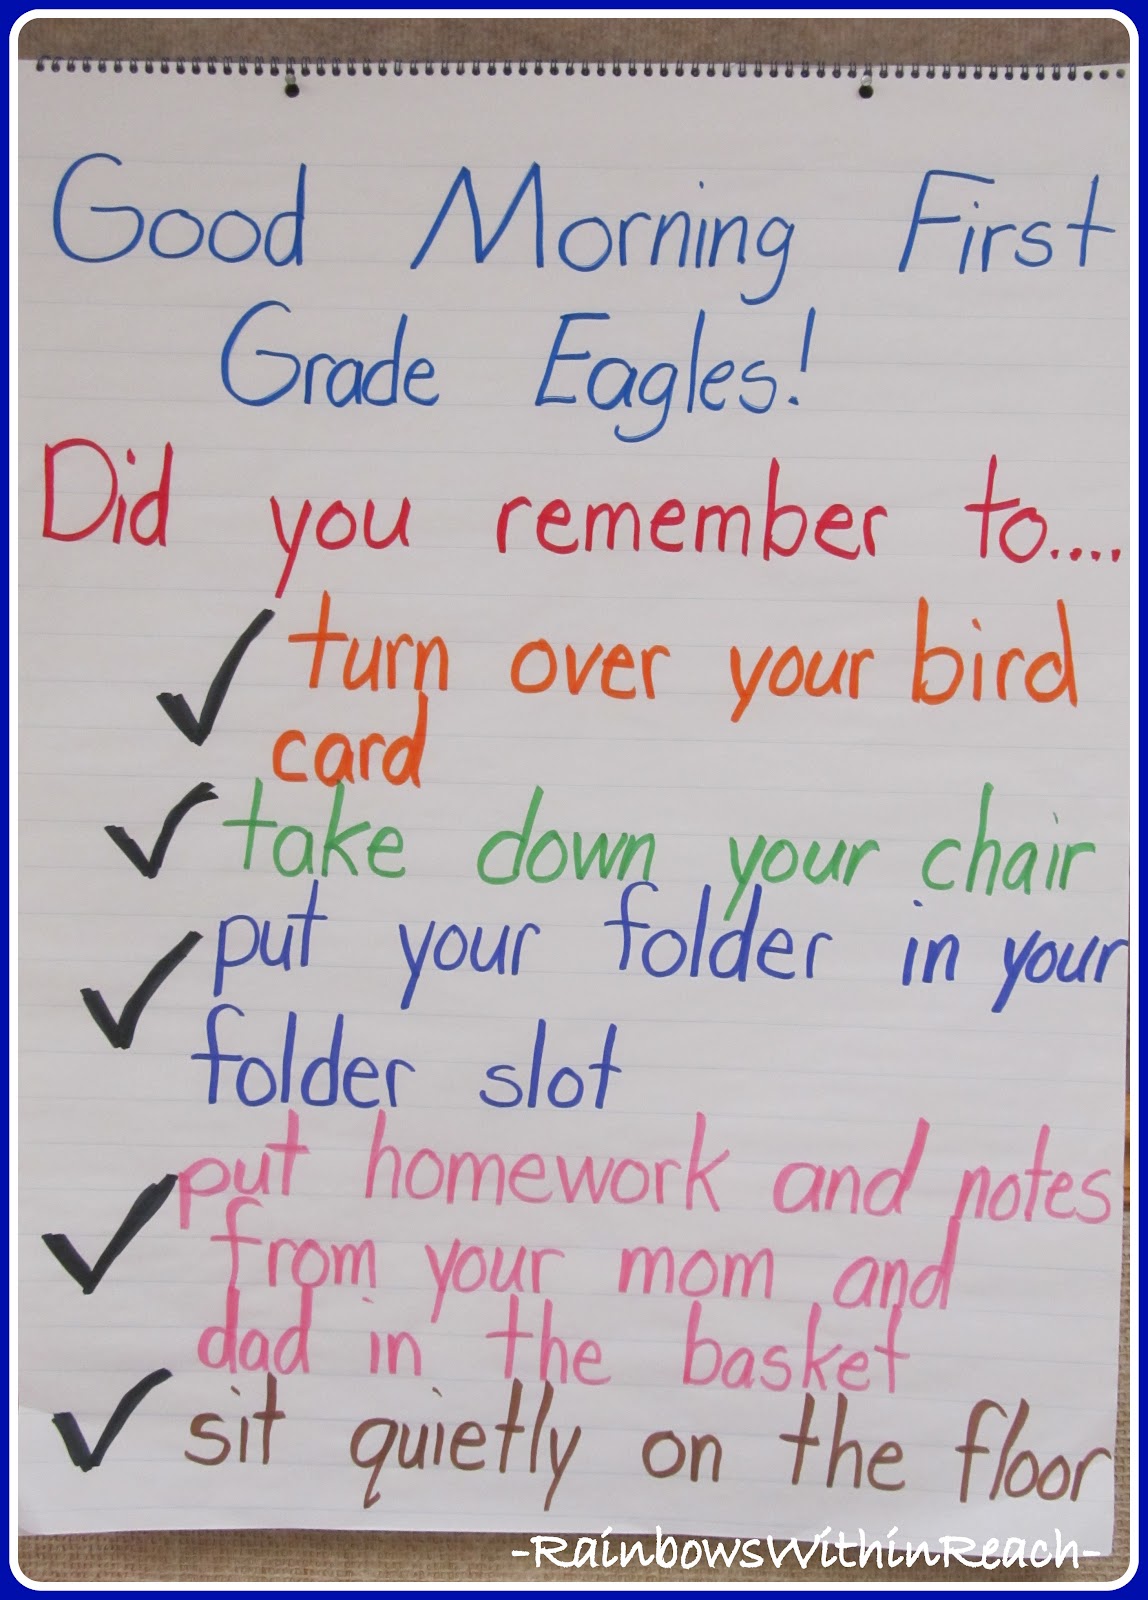 Good Morning First
Grade Eagles!
Did you remember to....
✓ turn over your bird
card
✓ take down your chair
✓ put your folder in your
folder slot
✓ put homework and notes
from your mom and
dad in the basket
✓ sit quietly on the floor
-RainbowsWithinReach-